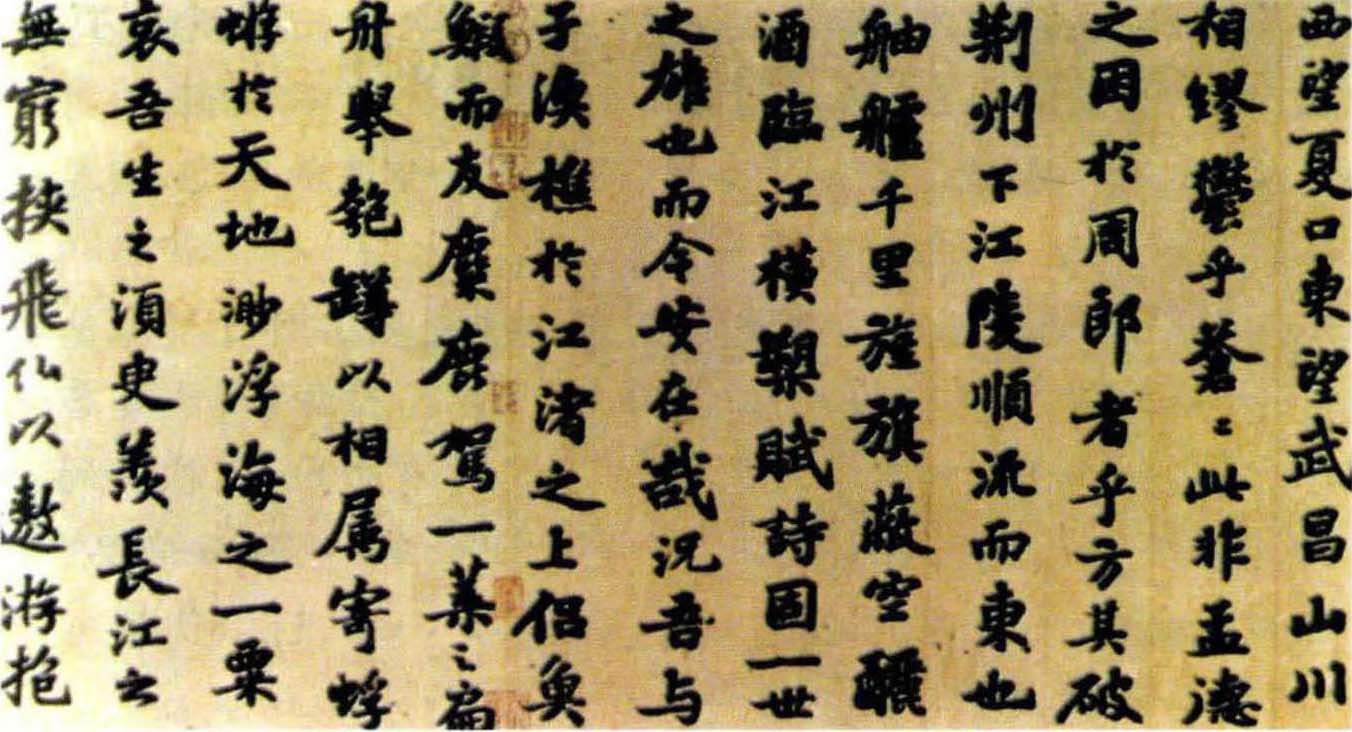 西望夏口東望武昌山川
相繆鬱乎蒼〻此非孟德
之困於周郎者乎方其破
荊州下江陵順流而東也
舳艫千里旌旗蔽空釃
酒臨江橫槊賦詩固一世
之雄也而今安在哉況吾与
子漁樵於江渚之上侶魚
鰕而友麋鹿駕一葉之扁
舟舉匏罇以相属寄蜉
蝣於天地渺浮海之一粟
哀吾生之須臾羨長江之
無窮挾飛仙以遨游抱